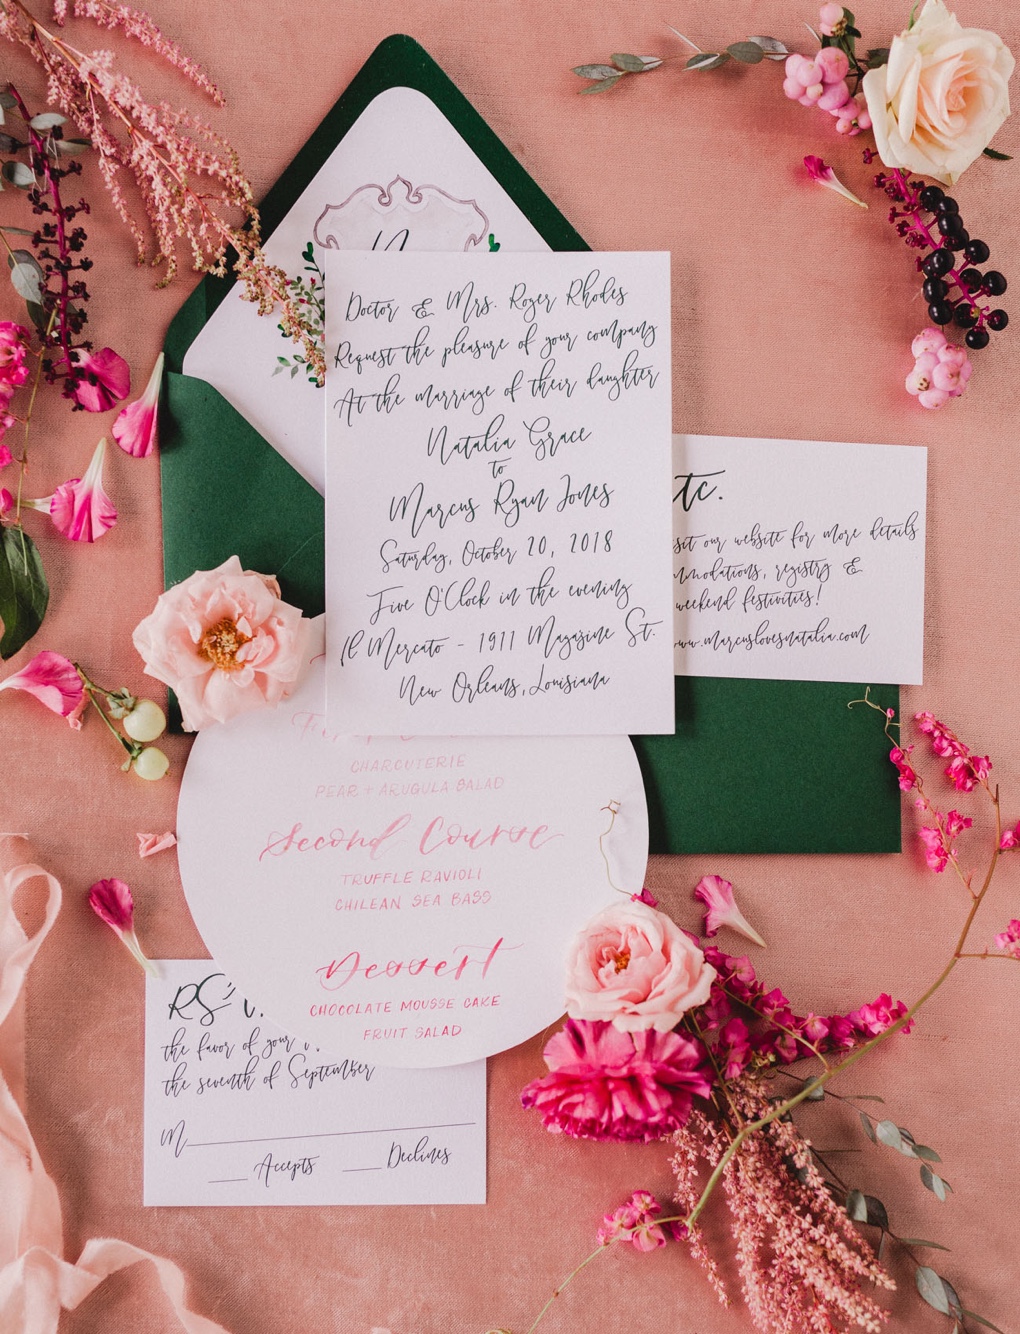 Doctor & Mrs. Roger Rhodes
Request the pleasure of your company
At the marriage of their daughter
Natalia Grace
to
Marcus Ryan Jones
Saturday, October 20, 2018
Five O'Clock in the evening
Il Mercato - 1911 Magazine St.
New Orleans, Louisiana
etc.
visit our website for more details
weekend festivities!
registry &
www.marcuslovesnatalia.com
CHARCUTERIE
PEAR + ARUGULA SALAD
Second Course
TRUFFLE RAVIOLI
CHILEAN SEA BASS
Dessert
CHOCOLATE MOUSSE CAKE
FRUIT SALAD
RSV
the favor of your
the seventh of September
M
Accepts Declines